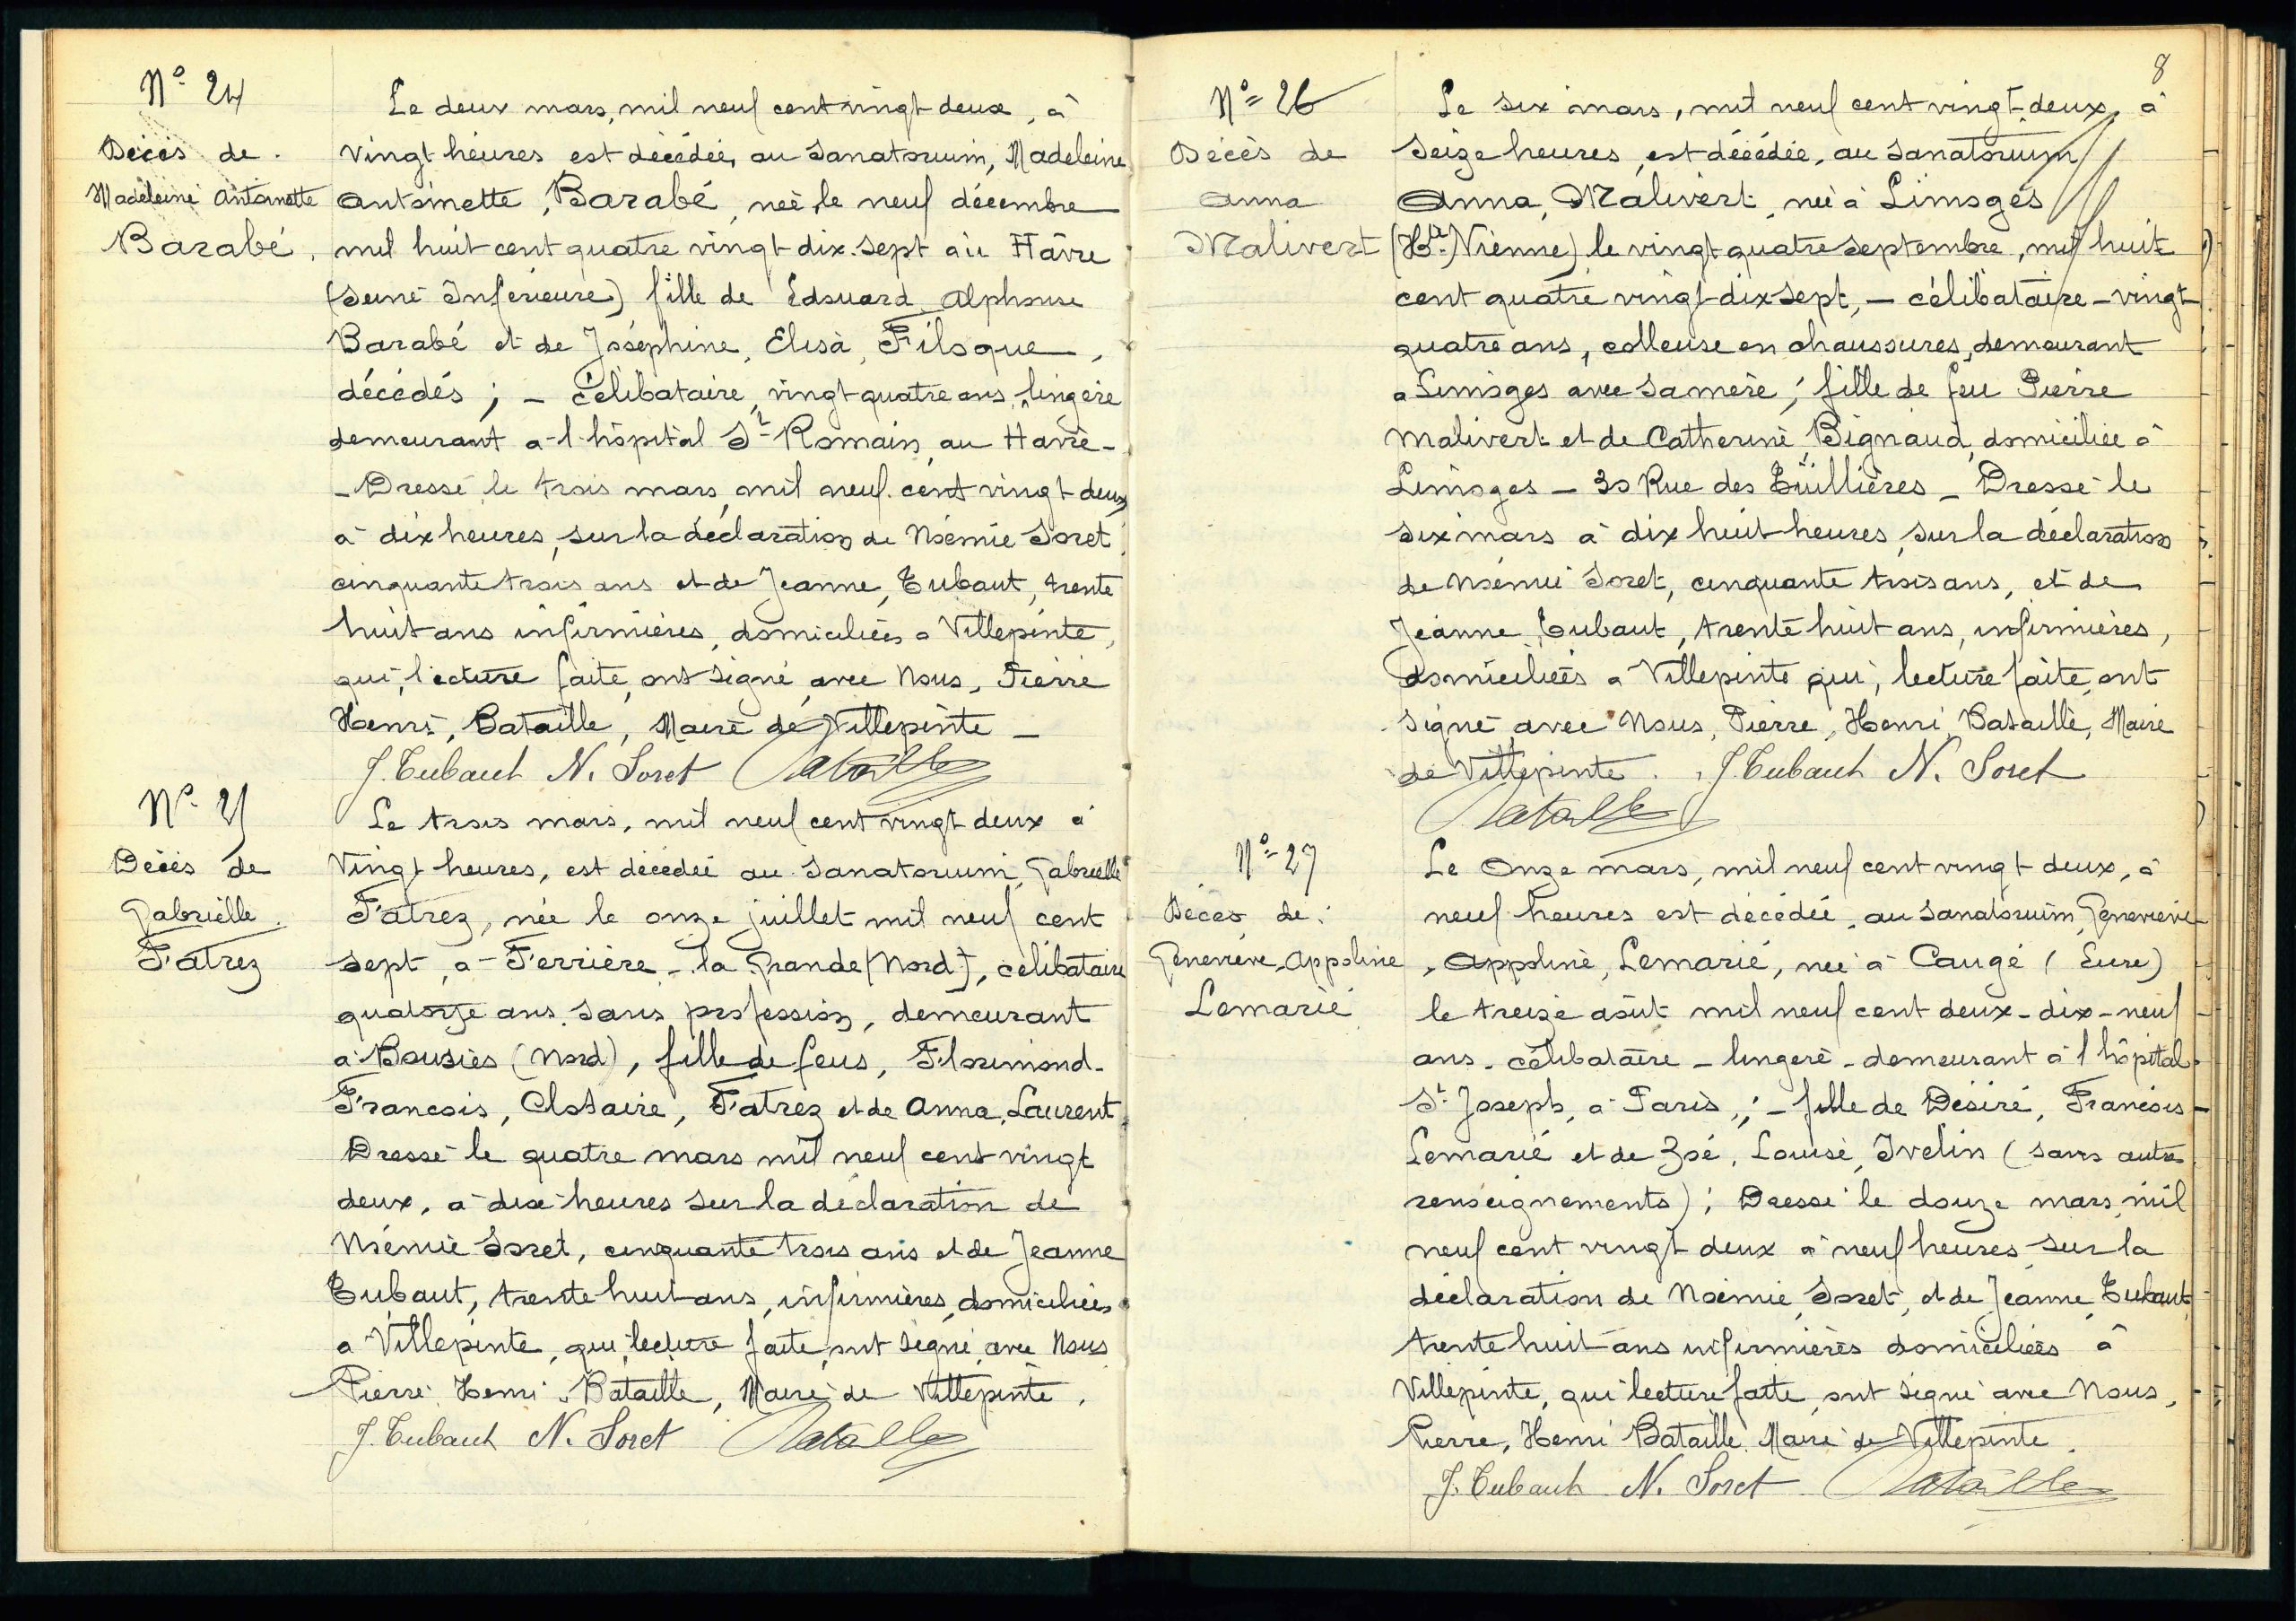 Nº 24
Décès de
Madeleine Antoinette
Barabé.
Le deux mars, mil neuf cent vingt deux, à
vingt heures est décédée, au Sanatorium, Madeleine
Antoinette, Barabé, née le neuf décembre
mil huit cent quatre vingt dix-sept au Hâvre
(Seine Inférieure) fille de Edouard Alphonse
Barabé et de Joséphine, Elisa, Filoque,
décédés ; – célibataire, vingt quatre ans, lingère
demeurant à l'hôpital St Romain, au Havre –
– Dressé le trois mars mil neuf cent vingt deux
à dix heures, sur la déclaration de Noémie Soret
cinquante trois ans et de Jeanne, Tubaut, trente
huit ans infirmières, domiciliées à Villepinte,
qui, lecture faite, ont signé avec Nous, Pierre
Henri, Bataille, Maire de Villepinte –
J. Tubaut N. Soret Bataille
Nº 25
Décès de
Gabrielle.
Fatrez
Le trois mars, mil neuf cent vingt deux à
Vingt heures, est décédée au Sanatorium, Gabrielle
Fatrez, née le onze juillet mil neuf cent
sept, à Ferrière-la Grande (Nord), célibataire
quatorze ans, sans profession, demeurant
à Bousies (Nord), fille de feus, Florimond
François, Clotaire, Fatrez et de Anna, Laurent
Dressé le quatre mars mil neuf cent vingt
deux, à dix heures sur la déclaration de
Noémie Soret, cinquante trois ans et de Jeanne
Tubaut, trente huit ans, infirmières, domiciliées
à Villepinte, qui, lecture faite, ont signé avec Nous
Pierre Henri Bataille, Maire de Villepinte.
J. Tubaut N. Soret Bataille
8
Nº 26
Décès de
Anna
Malivert
Le six mars, mil neuf cent vingt-deux, à
seize heures, est décédée, au Sanatorium
Anna, Malivert, née à Limoges
(Hte Vienne) le vingt quatre septembre, mil huit
cent quatre vingt-dix sept, – célibataire – vingt
quatre ans, colleuse en chaussures, demeurant
à Limoges avec sa mère ; fille de feu Pierre
Malivert et de Catherine Bignaud, domiciliée à
Limoges – 30 Rue des Tuillières – Dressé le
six mars à dix huit heures, sur la déclaration
de Noémie Soret, cinquante trois ans, et de
Jeanne, Tubaut, trente huit ans, infirmières,
domiciliées à Villepinte qui, lecture faite, ont
signé avec Nous, Pierre, Henri Bataille, Maire
de Villepinte. J. Tubaut N. Soret
Bataille
Nº 27
Décès de :
Geneviève, Appoline
Lemarié
Le Onze mars, mil neuf cent vingt deux, à
neuf heures est décédée, au Sanatorium, Geneviève
, Appoline, Lemarié, née à Caugé (Eure)
le treize août mil neuf cent deux – dix-neuf
ans – célibataire – lingère – demeurant à l'hôpital
St Joseph, à Paris, ; – fille de Désiré, François
Lemarié et de Zoé, Louise, Ivelin (sans autres
renseignements) ; Dressé le douze mars mil
neuf cent vingt deux à neuf heures sur la
déclaration de Noémie Soret, et de Jeanne, Tubaut,
trente huit ans infirmières domiciliées à
Villepinte, qui lecture faite, ont signé avec Nous,
Pierre, Henri Bataille, Maire de Villepinte.
J. Tubaut N. Soret Bataille